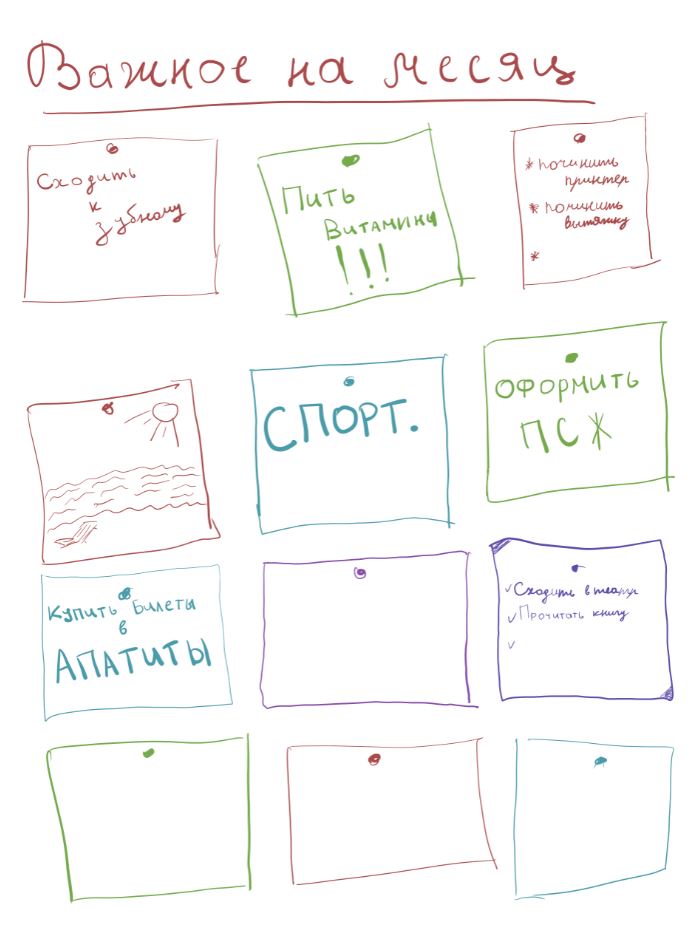 Важное на месяц
Сходить
к
зубному
Пить
Витамины
!!!
* починить
принтер
* починить
вытяжку
*
СПОРТ.
ОФОРМИТЬ
ПСЖ
Купить билеты
в
АПАТИТЫ
✓ Сходить в театр
✓ Прочитать книгу
✓